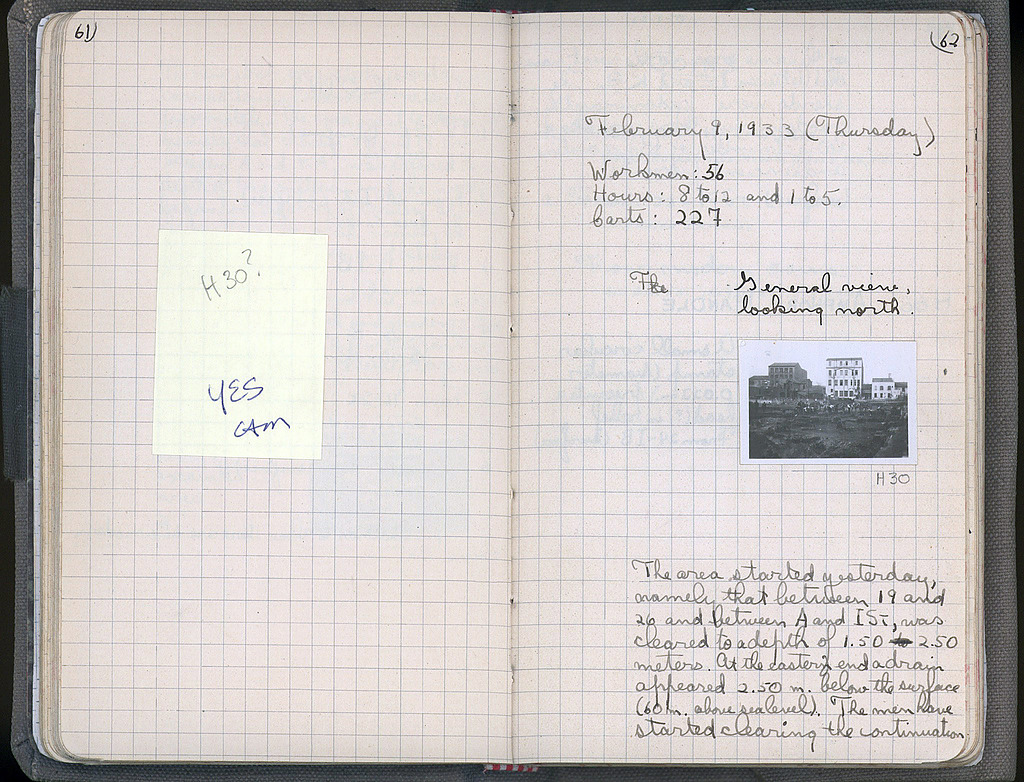 61)
H 30?
YES
CAM
(62
February 9, 1933 (Thursday)
Workmen: 56
Hours: 8 to 12 and 1 to 5.
Carts: 227
The
General view,
looking north
H30
The area started yesterday,
namely that between 19 and
29 and between A and IST, was
cleared to a depth of 1.50 to 2.50
meters. At the eastern end a drain
appeared 2.50 m. below the surface
(60 m. above sea level). The men have
started clearing the continuation